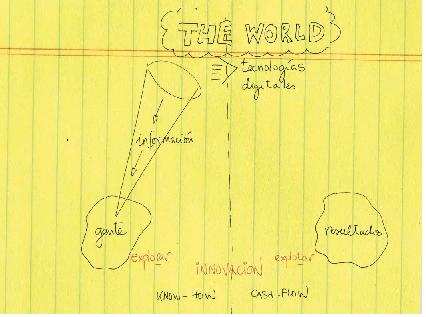 THE WORLD
tecnologías
digitales
información
gente
resultados
explorar
explotar
INNOVACIÓN
KNOW-HOW
CASH-FLOW